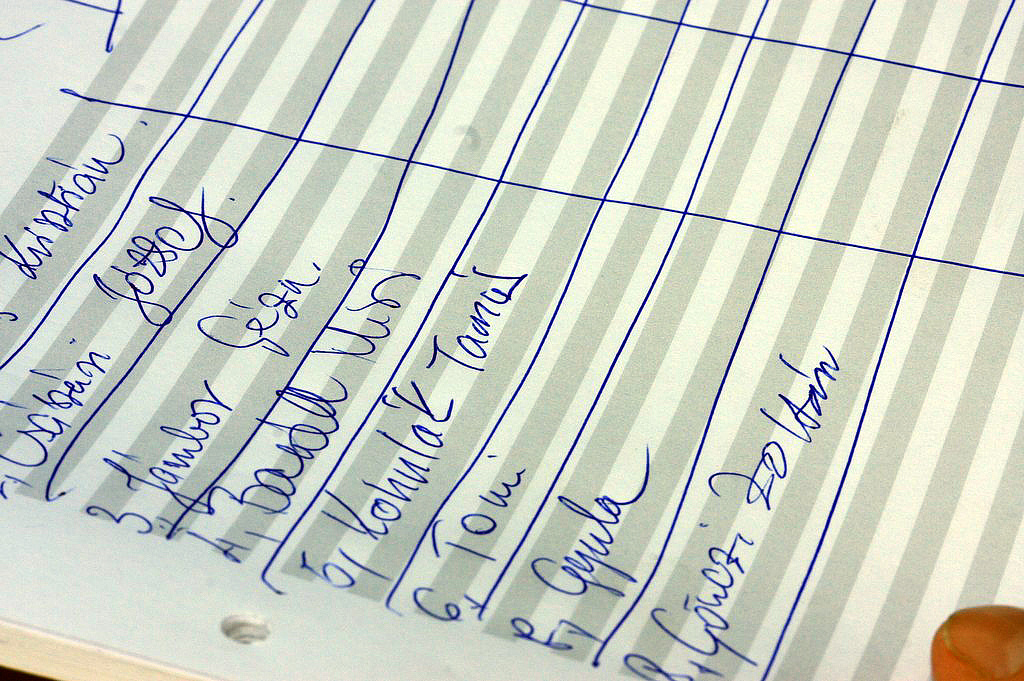 Krisztián.
Csibáni József.
3, Jámbor Géza.
4, Misi
5, Kohulák Tamás
6, Tomi
Gyula
8, Gönczi Zoltán